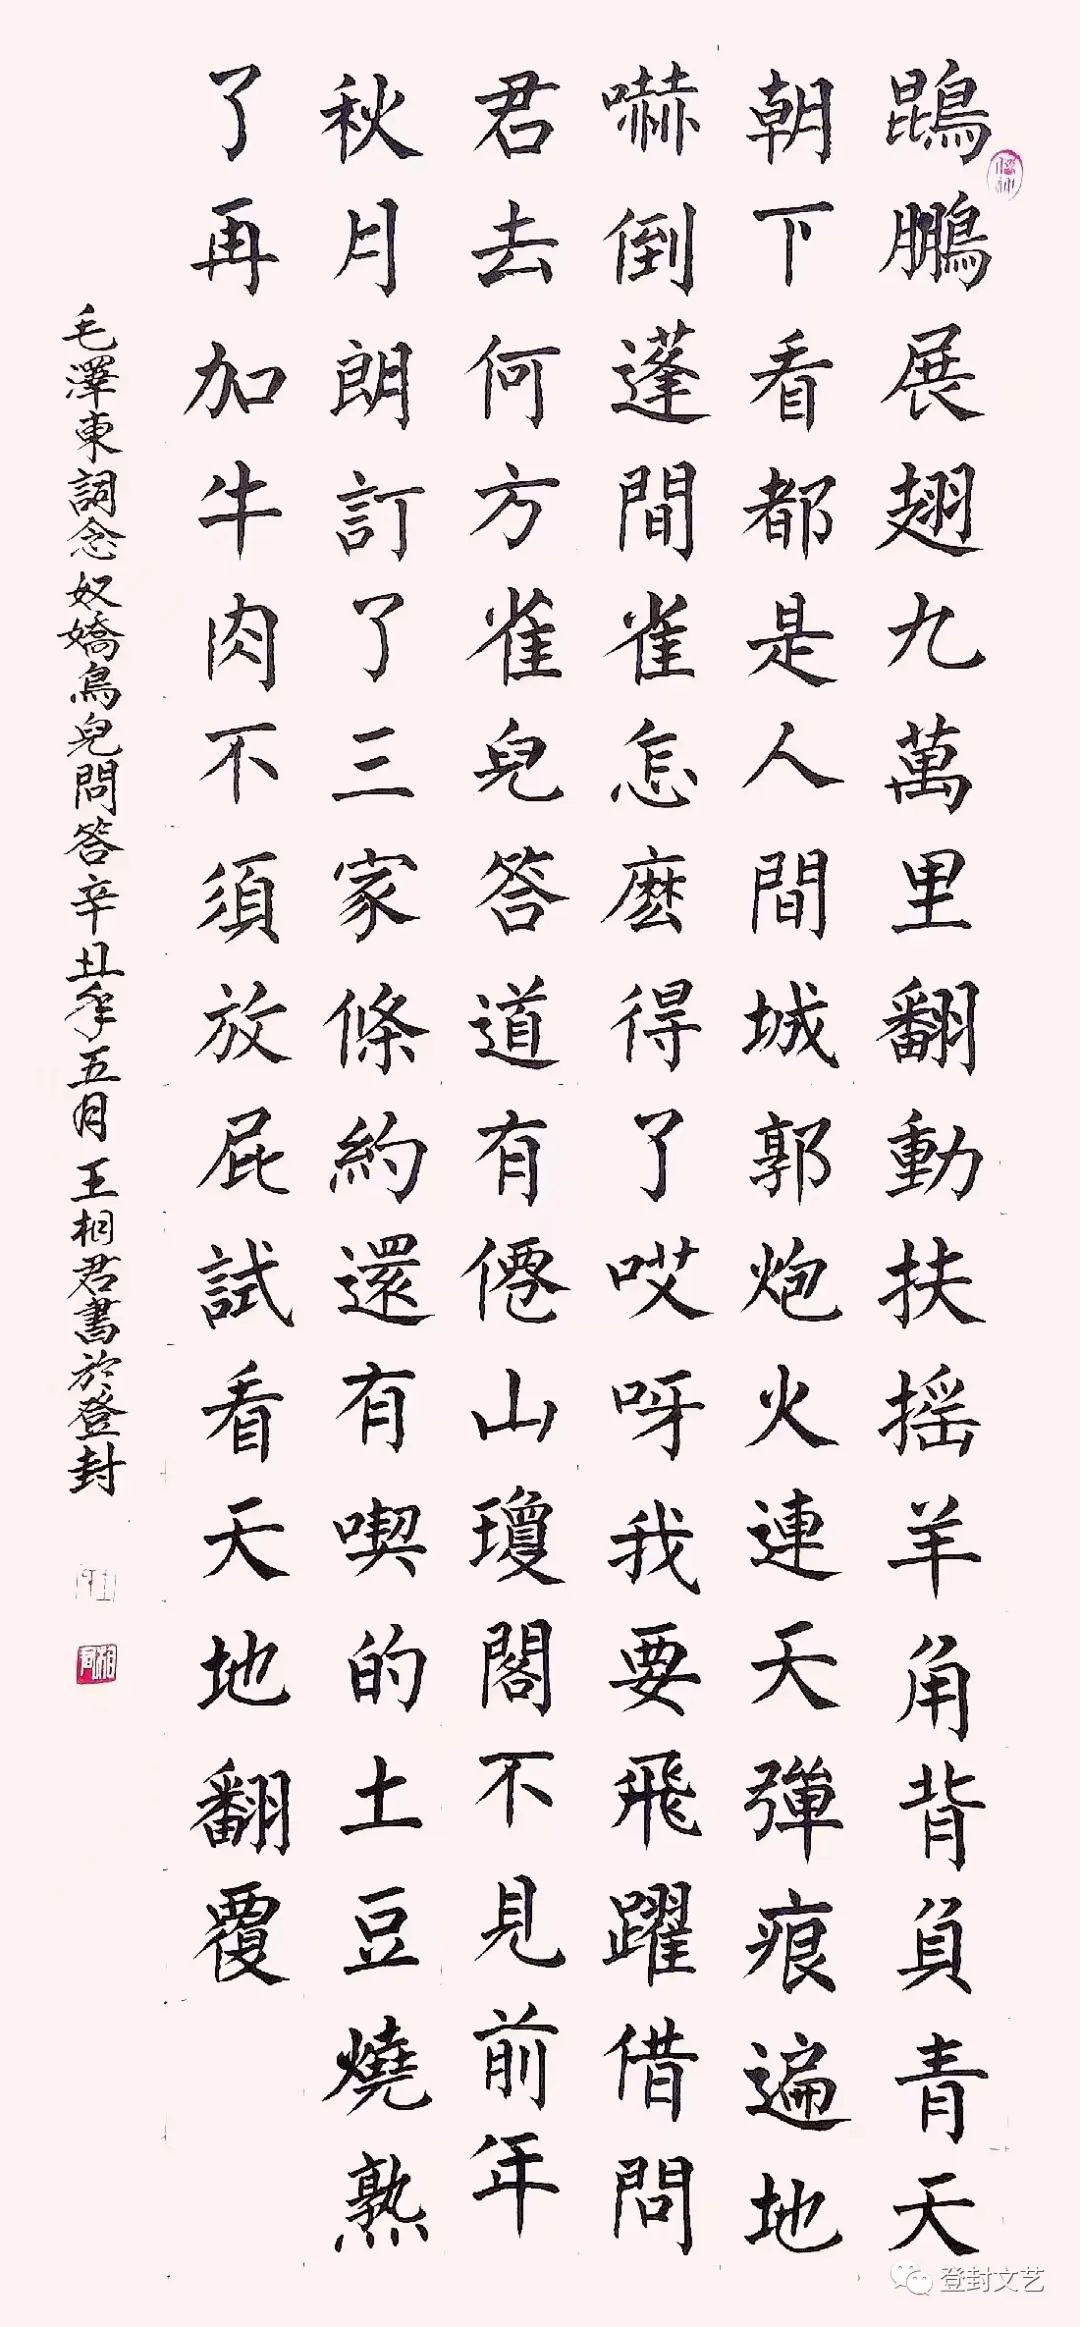 鵾鵬展翅九萬里翻動扶摇羊角背負青天
朝下看都是人間城郭炮火連天彈痕遍地
嚇倒蓬間雀怎麽得了哎呀我要飛躍借問
君去何方雀兒答道有僊山瓊閣不見前年
秋月朗訂了三家條約還有喫的土豆燒熟
了再加牛肉不須放屁試看天地翻覆
毛澤東詞念奴嬌鳥兒問答辛丑年五月王相君書於登封
相君
登封文艺